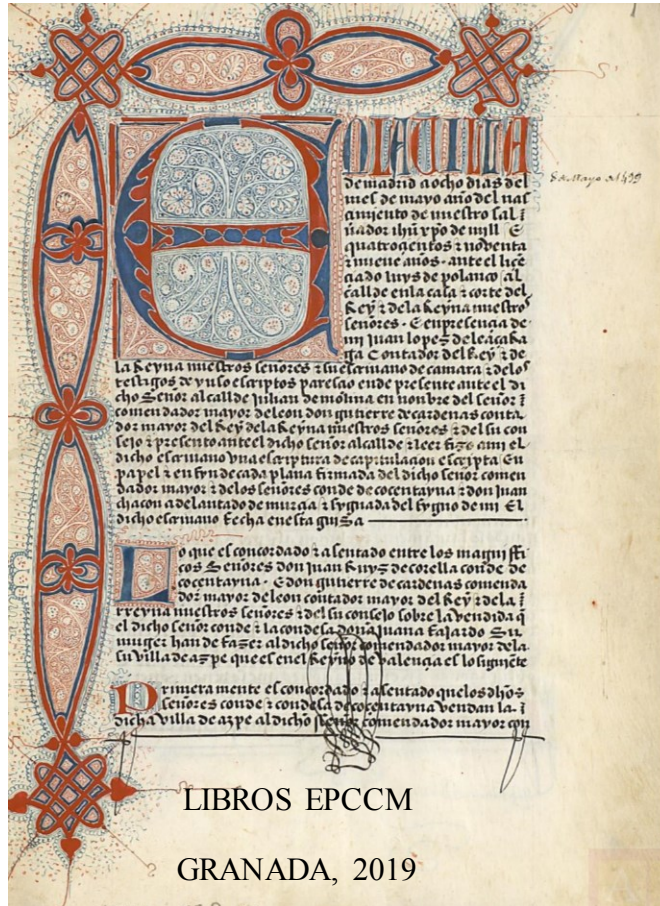 EN LA VILLA
de madrid a ocho dias del
mes de mayo año del nas
çimiento de nuestro sal
uador ihu xpo de mill E
quatroçentos & nouenta
& nueue años · ante el liçe
çiado luys de polanco al
calde en la casa & corte del
Rey & de la Reyna nuestros
señores · E en presençia de
mi juan lopez de leaçarra
ga Contador del Rey & de
la Reyna nuestros señores & su escriuano de camara & delos
testigos de yuso escriptos paresçio ende presente ante el di
cho Señor alcalde Juhan de molina en nonbre del señor
comendador mayor de leon don gutierre de cardenas conta
dor mayor del Rey & dela Reyna nuestros señores & del su con
sejo & presento ante el dicho señor alcalde & leer fizo a mi el
dicho escriuano vna escriptura de capitulaçion escripta En
papel & en fyn de cada plana firmada del dicho señor comen
dador mayor & delos señores conde de cocentayna & don Juan
chacon adelantado de murçia & sygnada del sygno de mi El
dicho escriuano fecha en esta guisa
Lo que es concordado & asentado entre los magnifi
cos Señores don Juan Ruyz de corella conde de
cocentayna · E don gutierre de cardenas comenda
dor mayor de leon contador mayor del Rey & dela
rreyna nuestros señores & del su consejo sobre la vendida q
el dicho señor conde & la condesa doña Juana fajardo Su
muger han de fazer al dicho señor comendador mayor dela
su villa de azpe que es en el Reyno de valençia es lo siguiente
Primeramente es concordado & asentado que los dhos
señores conde & condesa de cocentayna vendan la
dicha villa de azpe al dicho señor comendador mayor con
8 de Mayo de 1499
LIBROS EPCCM
GRANADA, 2019